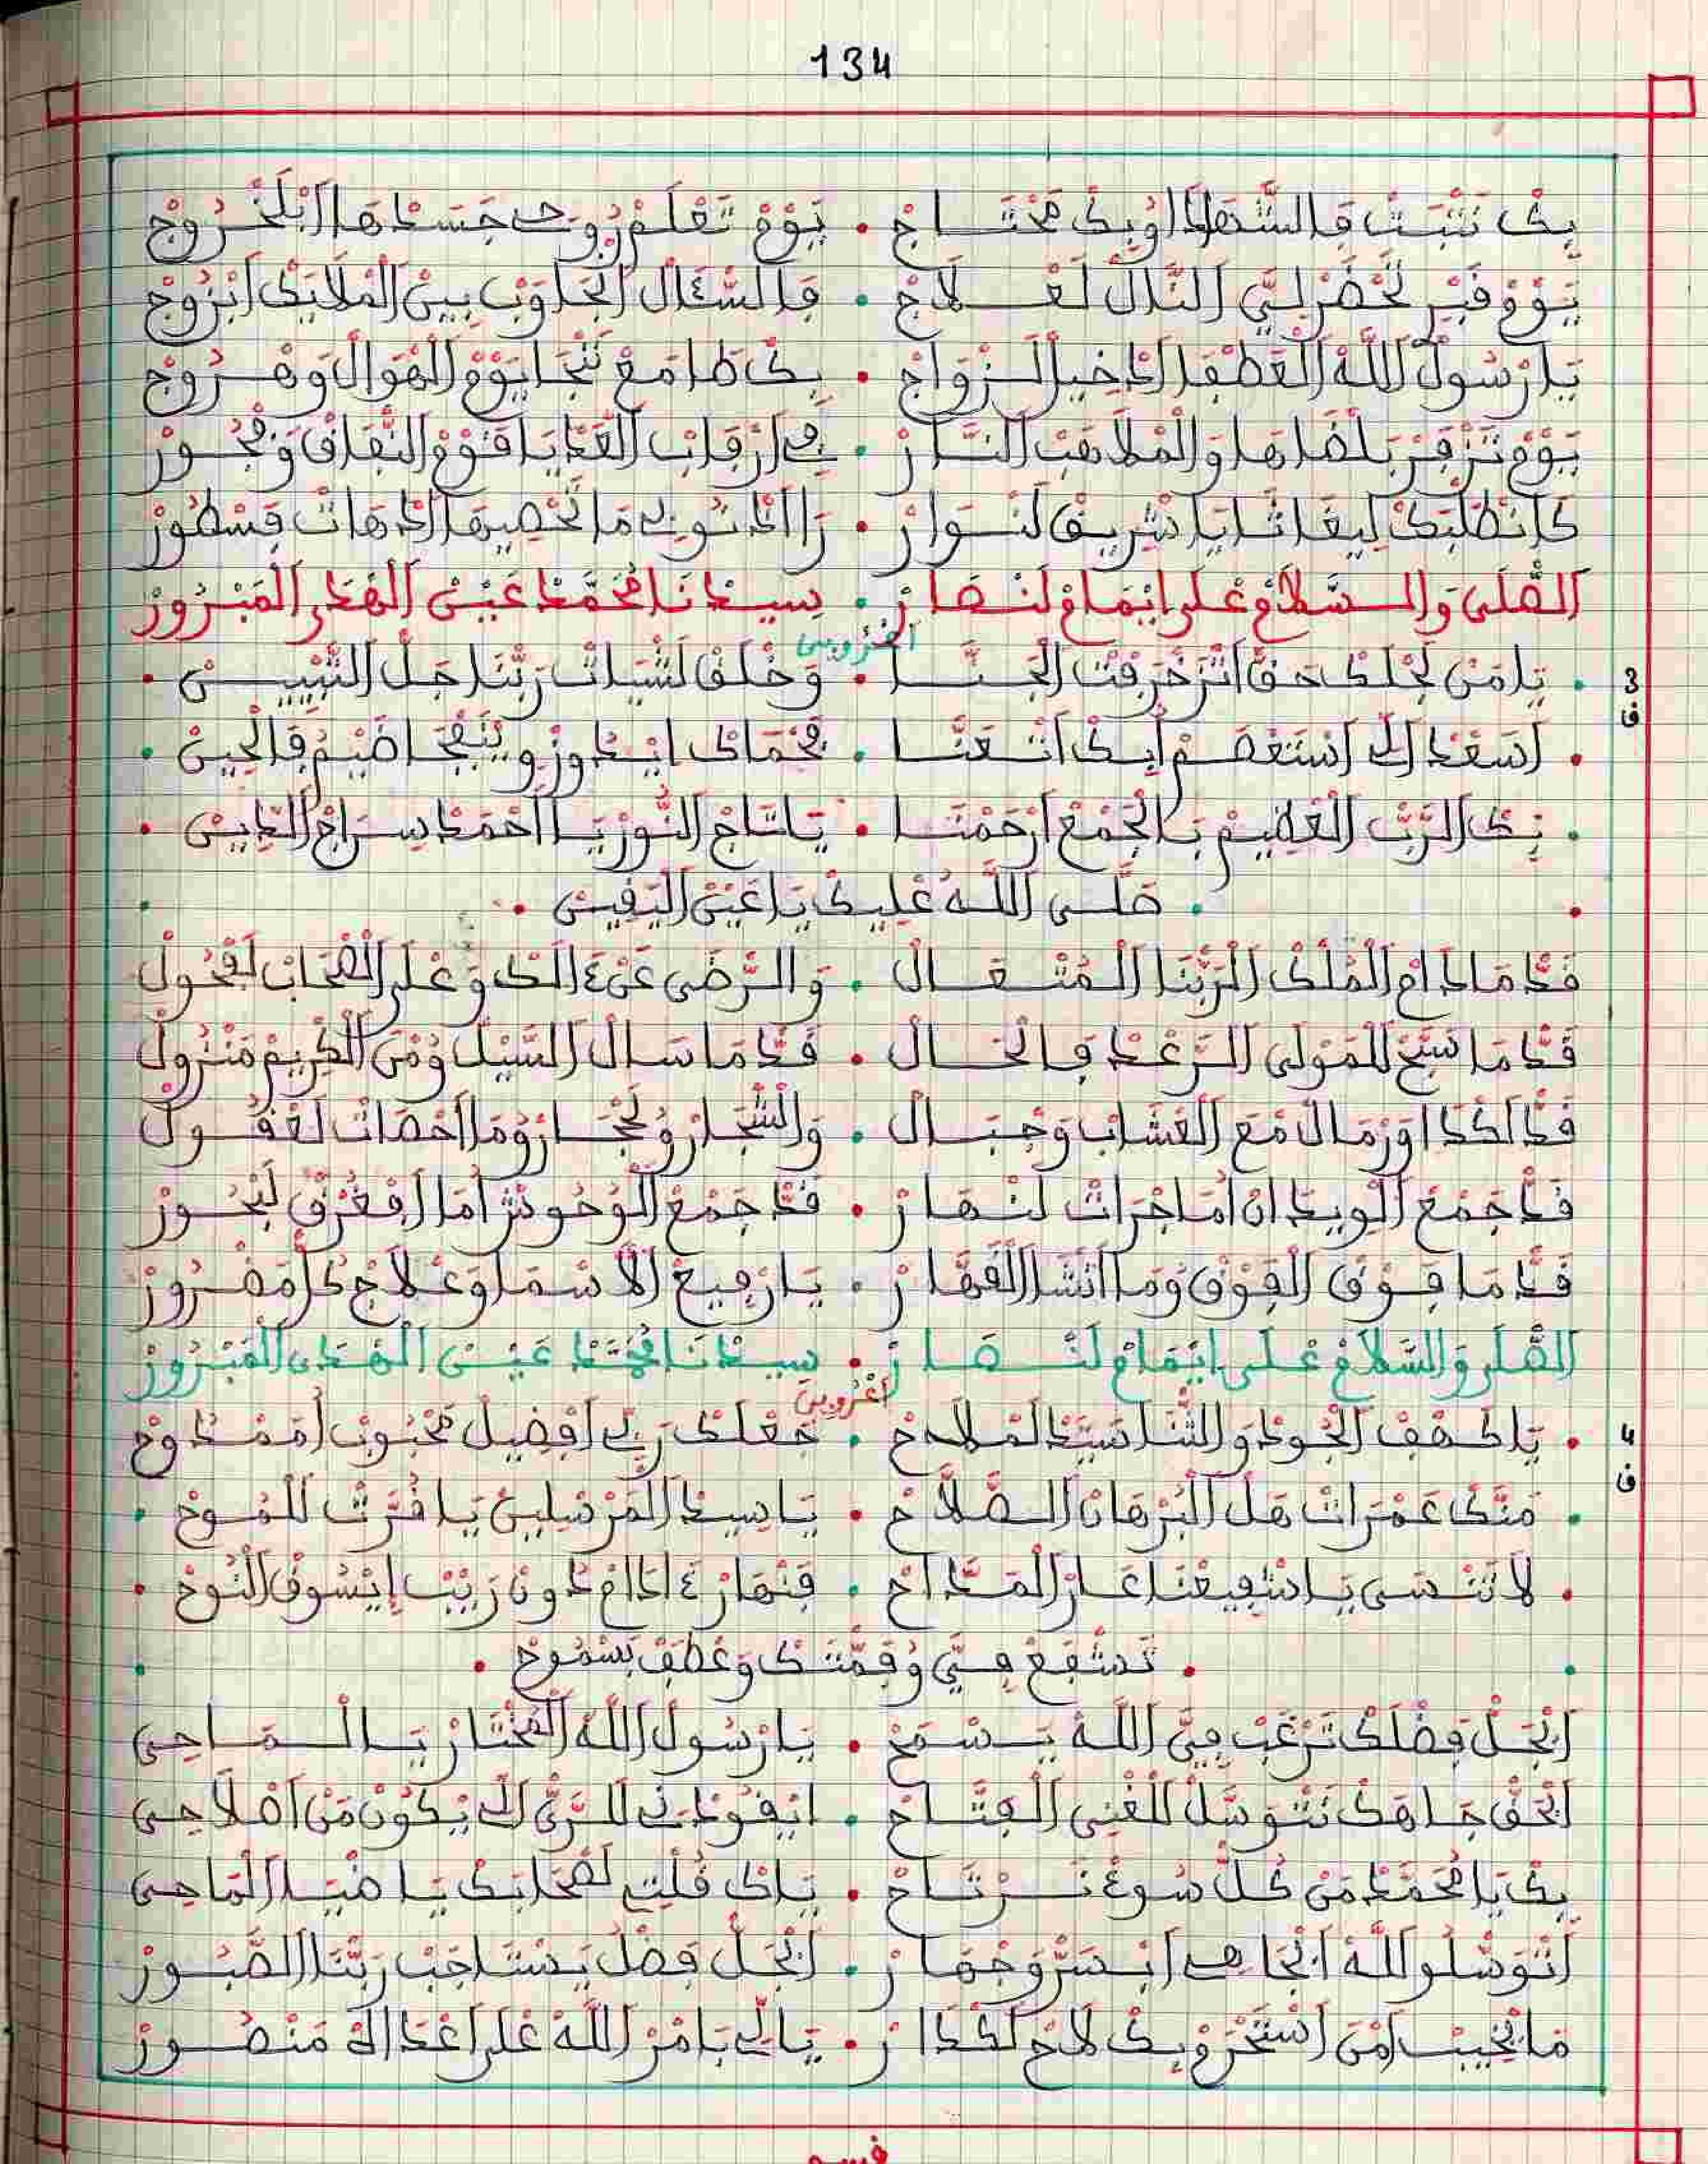 134
بك نثبت فالشهادا وبك محتاج • يوم تعلم روحي جسدها ابلخروج
يوم فبر لحضر لي النال لعلاج • فالسؤال الجاوب بين الملايك ابزوج
يا رسول الله العطفا الدخيل الزواج • بك طامع ننجا يوم الهوال وهروج
يوم تزفر بلضاها والملاهب النار • في ارقاب العدايا قوم النفاق وفجور
كانطلبك ليغاثا يا شريف لنوار • را الذنوبي ما تحصيها الدهات فسطور
الصلى والسلام على ايمام لنصار • سيدنا محمد عين الهدى المبرور
اعروبي
3
ف
• يا من لجلك حق اتزخرفت الجنا • وخلق لشيات ربنا جل التبيين •
• اسعد الي استعصم ابك اتعنا • فحماك ايدوز وينجا ضيم فالحين •
• بك الرب العظيم بالجمع ارحمنا • يا تاج النور يا احمد سراج الدين •
• صلى الله عليك يا عين اليفين •
فد مادام الملك الربنا المتعال • والرضى عن ءالك وعلى الصحاب لفحول
فد ما سبح للمولى الرعد فالحال • فد ما سال السيل ومن الكريم منزول
فد لكدا ورمال مع العشاب وجبال • والشجار وحجار وما احصات لعفول
فد جمع الويدان اما جرات لنهار • فد جمع الوحوش اما افعرف لبحور
فد ما فوق الفوق وما انشا القهار • يا رفيع الاسما وعلاج كل مضرور
الصلى والسلام على ايمام لنصار • سيدنا محمد عين الهدى المبرور
اعروبي
4
ف
• يا كهف الجود والثنا سيد لملاح • جعلك ربي افضيل محبوب اممدوح
• منك عمرات هل البرهان الصلاح • يا سيد المرسلين يا فرت للموح •
• لا تنسى يا شفيعنا عار المداح • فنهار ءادام دون ريب ايسوف النوح •
• تشفع فيي وفمتك وعطف بسموح •
ابجل فضلك ترغب فيي الله يسمح • يا رسول الله المختار يا الماحي
ابحق جاهك نتوسل للغني الفتاح • ايفودني للري الي يكون من اصلاحي
بك يا محمد من كل سوء نرتاح • ياك فلت لصحابك يا ضيا الماحي
اتوسلو الله ابجاهي ابسر وجهار • ابجل فضل يستاجب ربنا الصبور
ما يخيب امن استحرم بك لاح لكدار • يا لي بامر الله على اعداك منصور
فسم